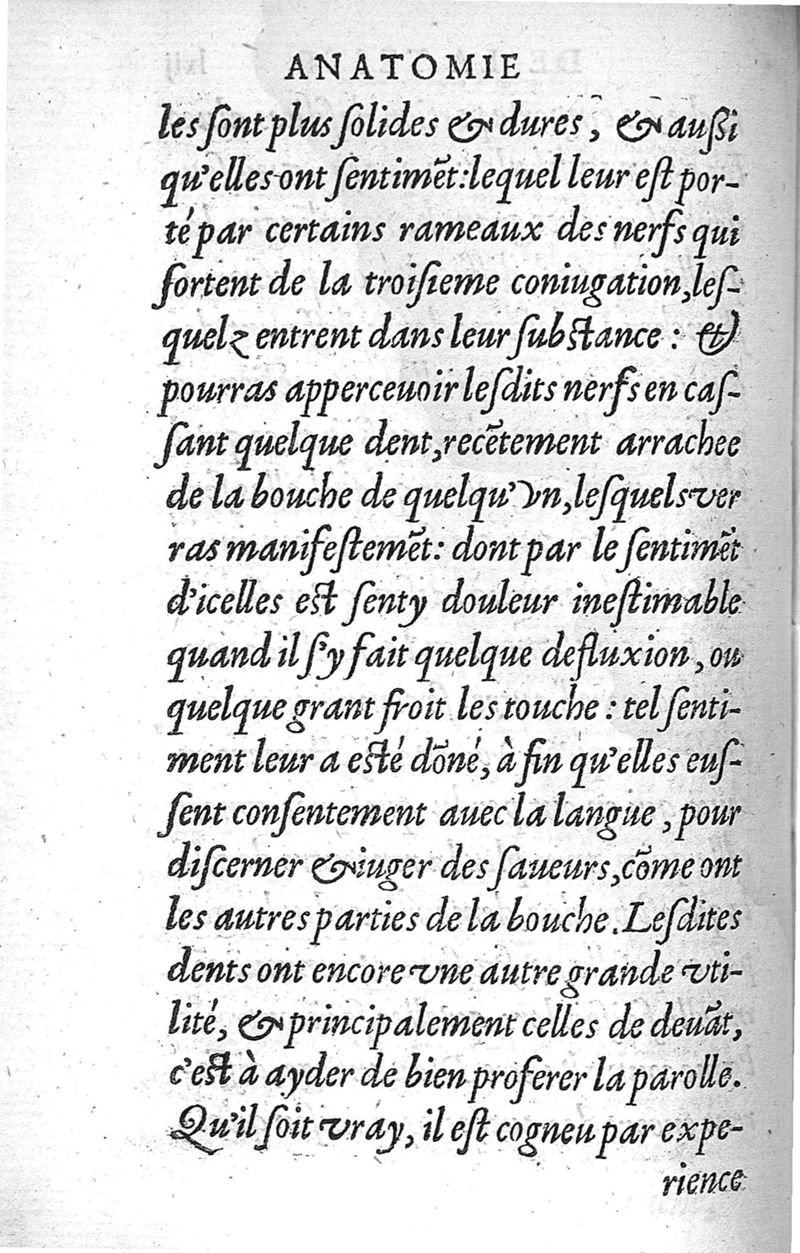 ANATOMIE
les ſont plus ſolides & dures, & außi
qu'elles ont ſentimēt: lequel leur eſt por-
té par certains rameaux des nerfs qui
ſortent de la troiſieme coniugation, leſ-
quelz entrent dans leur ſubſtance : &
pourras apperceuoir leſdits nerfs en caſ-
ſant quelque dent, recētement arrachee
de la bouche de quelqu'vn, leſquels ver
ras manifeſtemēt: dont par le ſentimēt
d'icelles eſt ſenty douleur ineſtimable
quand il ſ'y fait quelque defluxion, ou
quelque grant froit les touche : tel ſenti-
ment leur a eſté dōné, à fin qu'elles euſ-
ſent conſentement auec la langue, pour
diſcerner & iuger des ſaueurs, cōme ont
les autres parties de la bouche. Leſdites
dents ont encore vne autre grande vti-
lité, & principalement celles de deuāt,
c'eſt à ayder de bien proferer la parolle.
Qu'il ſoit vray, il eſt cogneu par expe-
rience